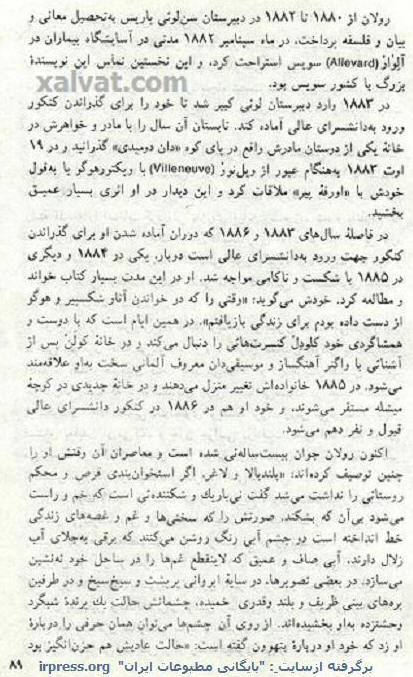 رولان از ۱۸۸۰ تا ۱۸۸۲ در دبیرستان سن‌لوئی پاریس به‌تحصیل معانی و
بیان و فلسفه پرداخت. در ماه سپتامبر ۱۸۸۲ مدتی در آسایشگاه بیماران در
آلوار (Allevard) سویس استراحت کرد، و این نخستین تماس این نویسندهٔ
بزرگ با کشور سویس بود.
xalvat.com
در ۱۸۸۳ وارد دبیرستان لوئی کبیر شد تا خود را برای گذراندن کنکور
ورود به‌دانشسرای عالی آماده کند. تابستان آن سال را با مادر و خواهرش در
خانهٔ یکی از دوستان مادرش واقع در پای کوه «دان دومیدی» گذرانید و در ۱۹
اوت ۱۸۸۳ به‌هنگام عبور از ویل‌نوو (Villeneuve) با ویکتورهوگو یا به‌قول
خودش با «اورفهٔ پیر» ملاقات کرد و این دیدار در او اثری بسیار عمیق
بخشید.
در فاصلهٔ سال‌های ۱۸۸۳ و ۱۸۸۶ که دوران آماده شدن او برای گذراندن
کنکور جهت ورود به‌دانشسرای عالی است دوبار، یکی در ۱۸۸۴ و دیگری
در ۱۸۸۵ با شکست و ناکامی مواجه شد. او در این مدت بسیار کتاب خواند
و مطالعه کرد. خودش می‌گوید: «وقتی را که در خواندن آثار شکسپیر و هوگو
از دست داده بودم برای زندگی بازیافتم». در همین ایام است که با دوست و
همشاگردی خود کلودل کنسرت‌هائی را دنبال می‌کند و در خانهٔ کولن پس از
آشنائی با واگنر آهنگساز و موسیقی‌دان معروف آلمانی سخت به‌او علاقه‌مند
می‌شود. در ۱۸۸۵ خانواده‌اش تغییر منزل می‌دهند و در خانهٔ جدیدی در کوچهٔ
میشله مستقر می‌شوند، و خود او هم در ۱۸۸۶ در کنکور دانشسرای عالی
قبول و نفر دهم می‌شود.
اکنون رولان جوان بیست‌ساله‌ئی شده است و معاصران آن وقتش او را
چنین توصیف کرده‌اند: «بلندبالا و لاغر، اگر استخوان‌بندی قرص و محکم
روستائی را نداشت می‌شد گفت نی‌باریک و شکننده‌ئی است که خم و راست
می‌شود بی‌آن که بشکند. صورتش را که سختی‌ها و غم و غصه‌های زندگی
خط انداخته است دو چشم آبی رنگ روشن می‌کنند که برقی به‌جلای آب
زلال دارند. آبی صاف و عمیق که لاینقطع غم‌ها را در ساحل خود ته‌نشین
می‌سازد. در بعضی تصویرها، در سایهٔ ابروانی پرپشت و سیخ‌سیخ و در طرفین
پره‌های بینی ظریف و بلند وقدری خمیده، چشمانش حالت یك پرندهٔ شبگرد
وحشتزده به‌او بخشیده‌اند. از روی آن چشم‌ها می‌توان همان حرفی را دربارهٔ
او زد که خود او دربارهٔ بتهوون گفته است: «حالت عادیش هم حزن‌انگیز بود
۸۹
برگرفته ازسایت: "بایگانی مطبوعات ایران" irpress.org